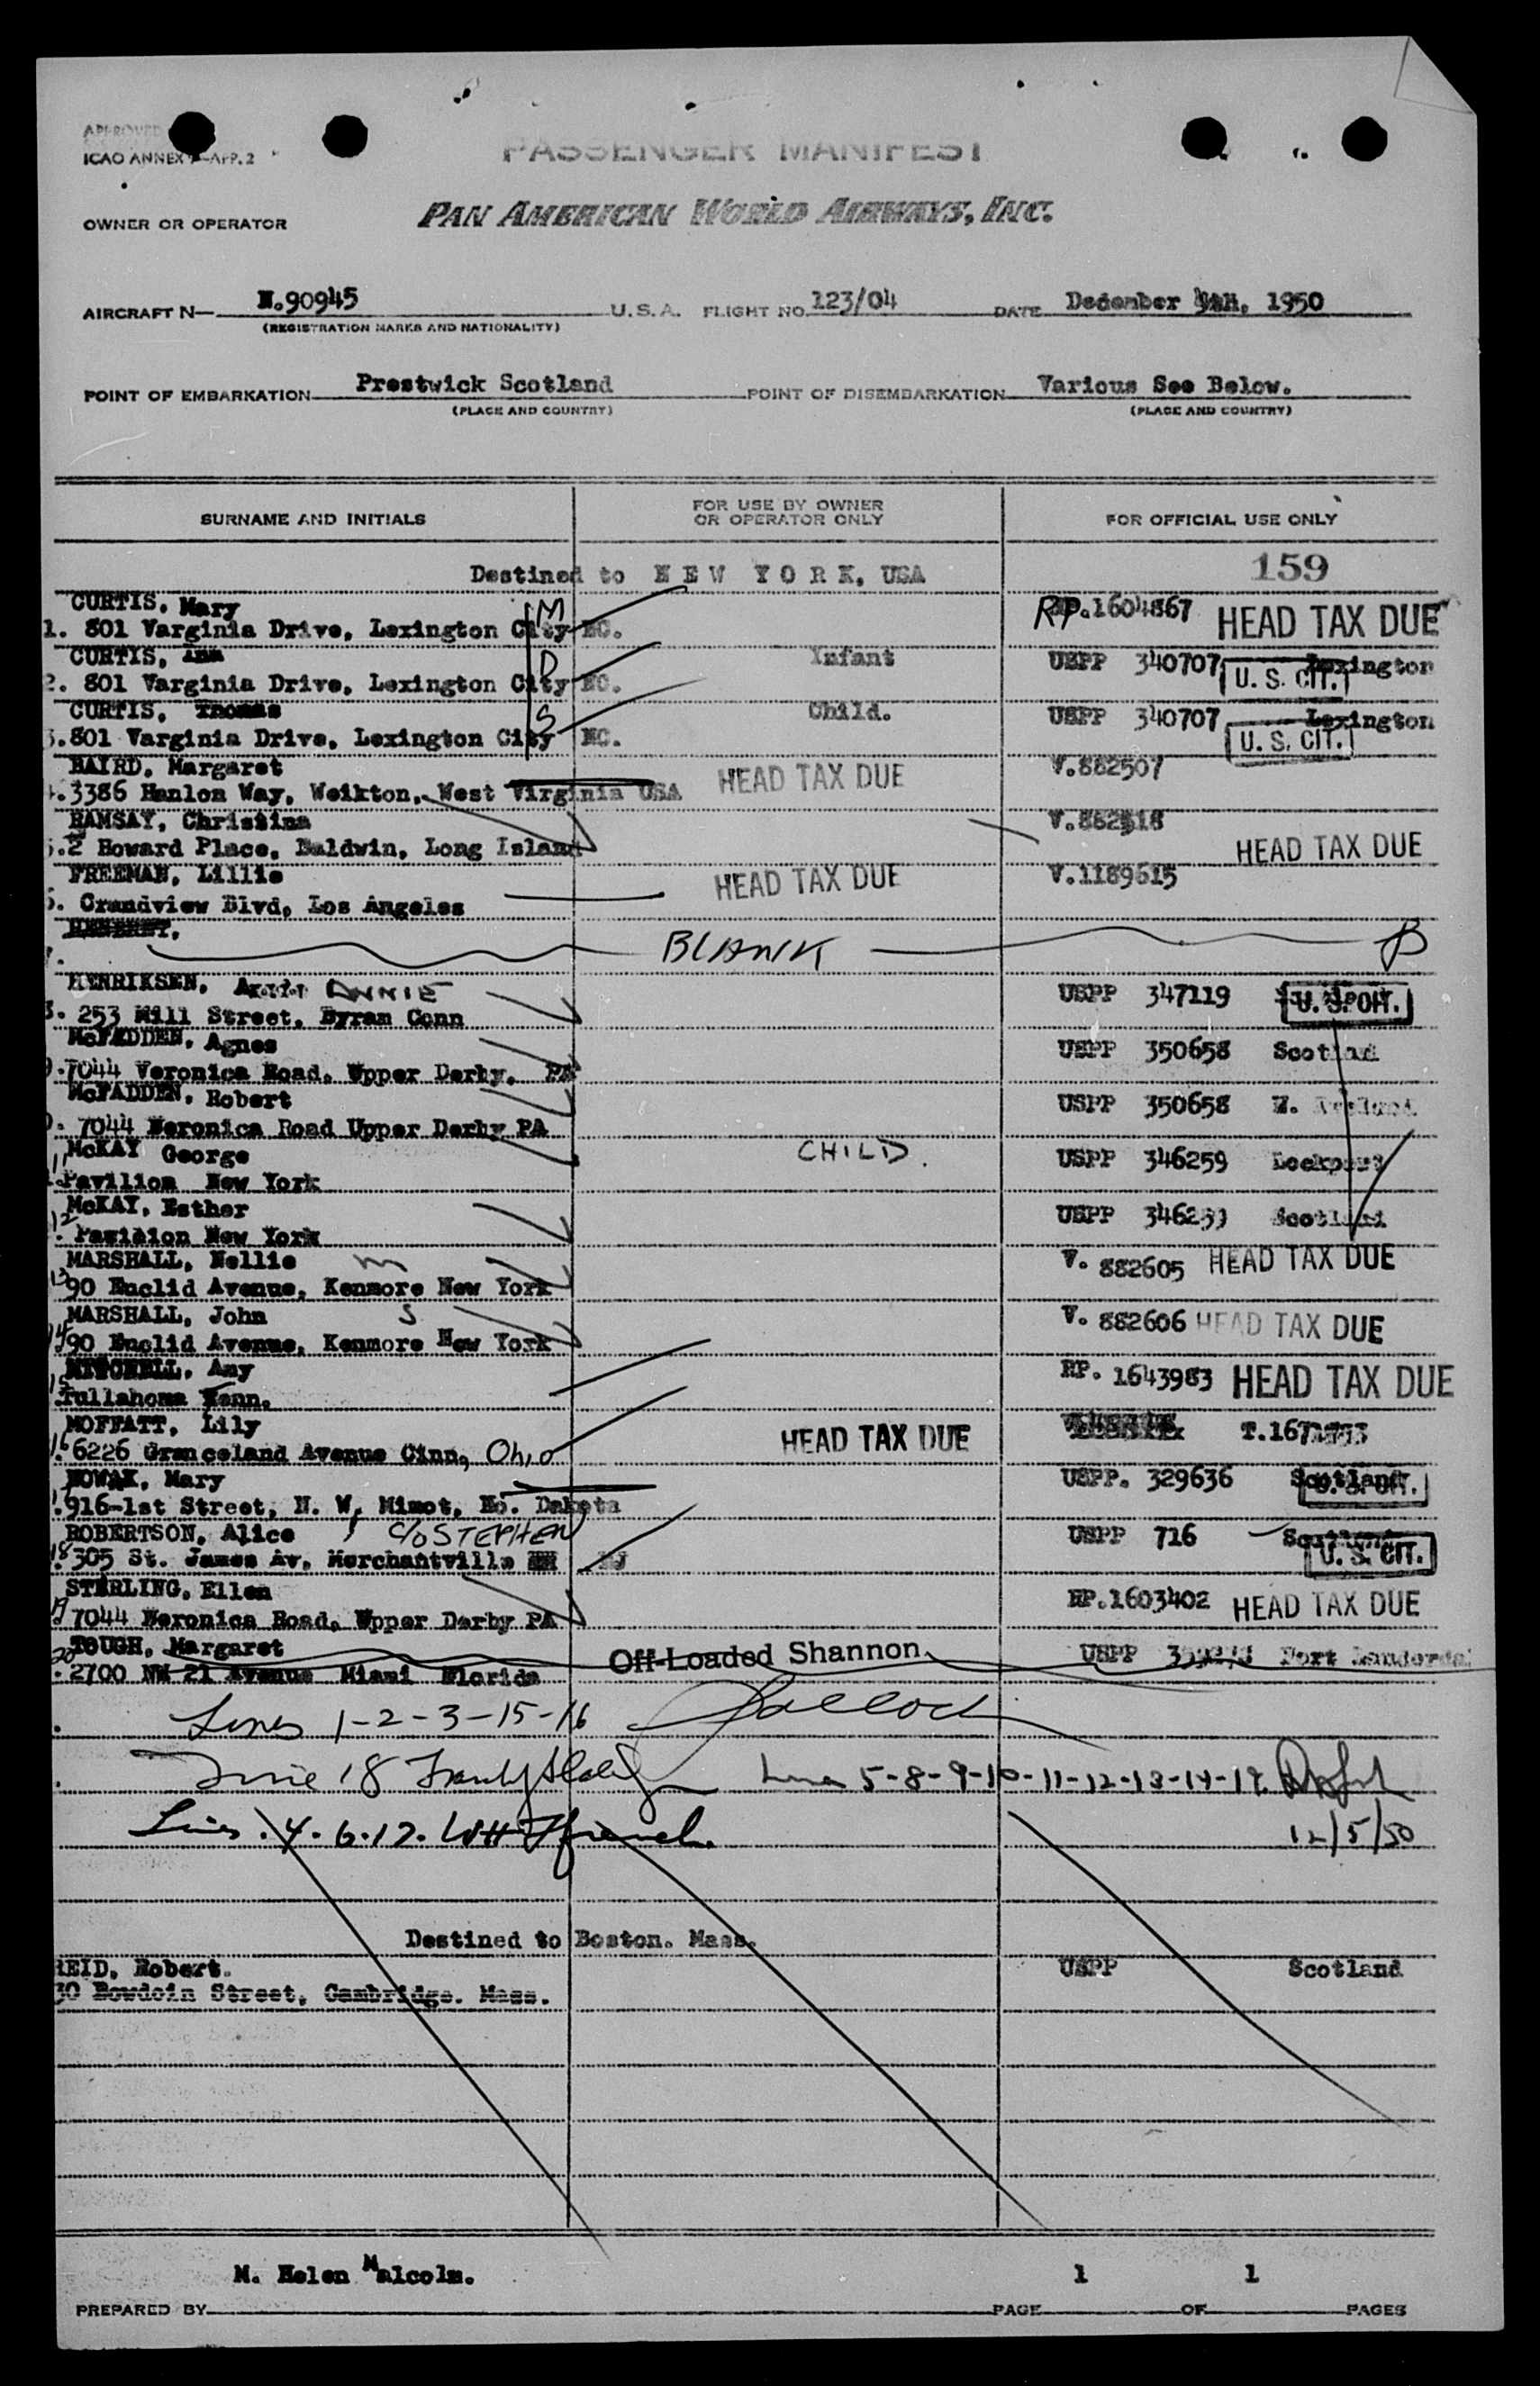 APPROVED
ICAO ANNEX 9-APP. 2
PASSENGER MANIFEST
OWNER OR OPERATOR PAN AMERICAN WORLD AIRWAYS, INC.
AIRCRAFT N— N.90945 U.S.A. FLIGHT NO. 123/04 DATE December 1950
(REGISTRATION MARKS AND NATIONALITY)
POINT OF EMBARKATION Prestwick Scotland POINT OF DISEMBARKATION Various See Below.
(PLACE AND COUNTRY) (PLACE AND COUNTRY)
SURNAME AND INITIALS FOR USE BY OWNER OR OPERATOR ONLY FOR OFFICIAL USE ONLY
Destined to NEW YORK, USA 159
CURTIS, Mary M RP.1604867 HEAD TAX DUE
1. 801 Varginia Drive, Lexington City NC.
CURTIS, Ann D Infant USPP 340707 Lexington U. S. CIT.
2. 801 Varginia Drive, Lexington City NC.
CURTIS, Thomas S Child. USPP 340707 Lexington
3.801 Varginia Drive, Lexington City NC. U. S. CIT.
BAIRD, Margaret HEAD TAX DUE V.882507
.3386 Hanlon Way, Weikton, West Virginia USA
RAMSAY, Christina V.882518
.2 Howard Place, Baldwin, Long Island HEAD TAX DUE
FREEMAN, Lillie HEAD TAX DUE V.1189615
. Grandview Blvd, Los Angeles
BLANK
HENRIKSEN, ANNIE USPP 347119 U. S. CIT.
. 253 Mill Street, Byram Conn
McFADDEN, Agnes USPP 350658 Scotland
.7044 Veronica Road, Upper Derby, PA
McFADDEN, Robert USPP 350658
. 7044 Weronica Road Upper Derby PA
McKAY George CHILD. USPP 346259 Lockport
11 Pavilion New York
McKAY, Esther USPP 346259 Scotland
12 . Pavilion New York
MARSHALL, Nellie m V. 882605 HEAD TAX DUE
13 90 Euclid Avenue, Kenmore New York
MARSHALL, John S V. 882606 HEAD TAX DUE
14 90 Euclid Avenue, Kenmore New York
MITCHELL, Amy RP. 1643983 HEAD TAX DUE
15 Tullahoma Tenn.
MOFFATT, Lily HEAD TAX DUE
16. 6226 Granceland Avenue Cinn, Ohio
NOWAK, Mary USPP. 329636 Scotland U. S. CIT.
.916-1st Street, N. W. Minot, No. Dakota
ROBERTSON, Alice C/O STEPHEN USPP 716 Scotland
18. 305 St. James Av, Merchantville NJ U. S. CIT.
STERLING, Ellen RP.1603402 HEAD TAX DUE
19 7044 Weronica Road, Upper Derby PA
20 TOUGH, Margaret Off-Loaded Shannon. USPP Fort
. 2700 NW 21 Avenue Miami Florida
Lines 1-2-3-15-16
18 5-8-9-10-11-12-13-14-19
4. 6. 17. 12/5/50
Destined to Boston. Mass.
REID, Robert. USPP Scotland
30 Bowdoin Street, Cambridge. Mass.
M. Helen Malcolm. 1 1
PREPARED BY PAGE OF PAGES